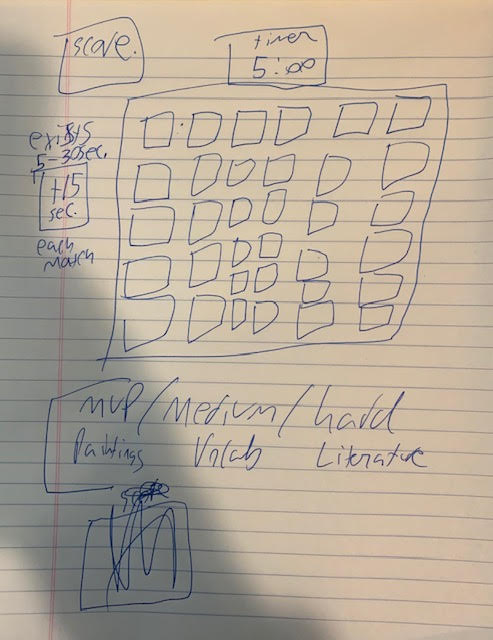 score.
timer
5:00
5-30sec.
+15
sec.
each
match
MVP/Medium/hard
Paintings Vocab Literature